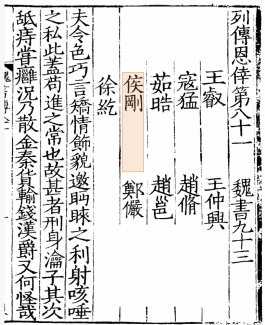 列傳恩倖第八十一　魏書九十三
王叡　王仲興
寇猛　趙脩
茹皓　趙邕
侯剛　鄭儼
徐紇
夫令色巧言矯情飾貌邀眄睞之利射咳唾
之私此蓋苟進之常也故甚者刑身瀹子其次
舐痔嘗癰況乃散金秦貨輸錢漢爵又何怪哉